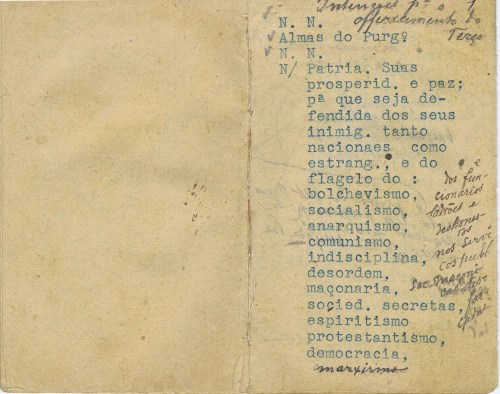 Intenções pª o
N. N. offerecimento do
Almas do Purgº Terço
N. N.
N/ Patria. Suas
prosperid. e paz;
pª que seja de-
fendida dos seus
inimig. tanto
nacionaes como
estrang., e do
flagelo do :
bolchevismo,
socialismo,
anarquismo,
comunismo,
indisciplina,
desordem,
maçonaria,
socied. secretas,
espiritismo
protestantismo,
democracia,
marxismo
e
dos fun-
cionários
ladrões e
deshones-
tos
nos servi